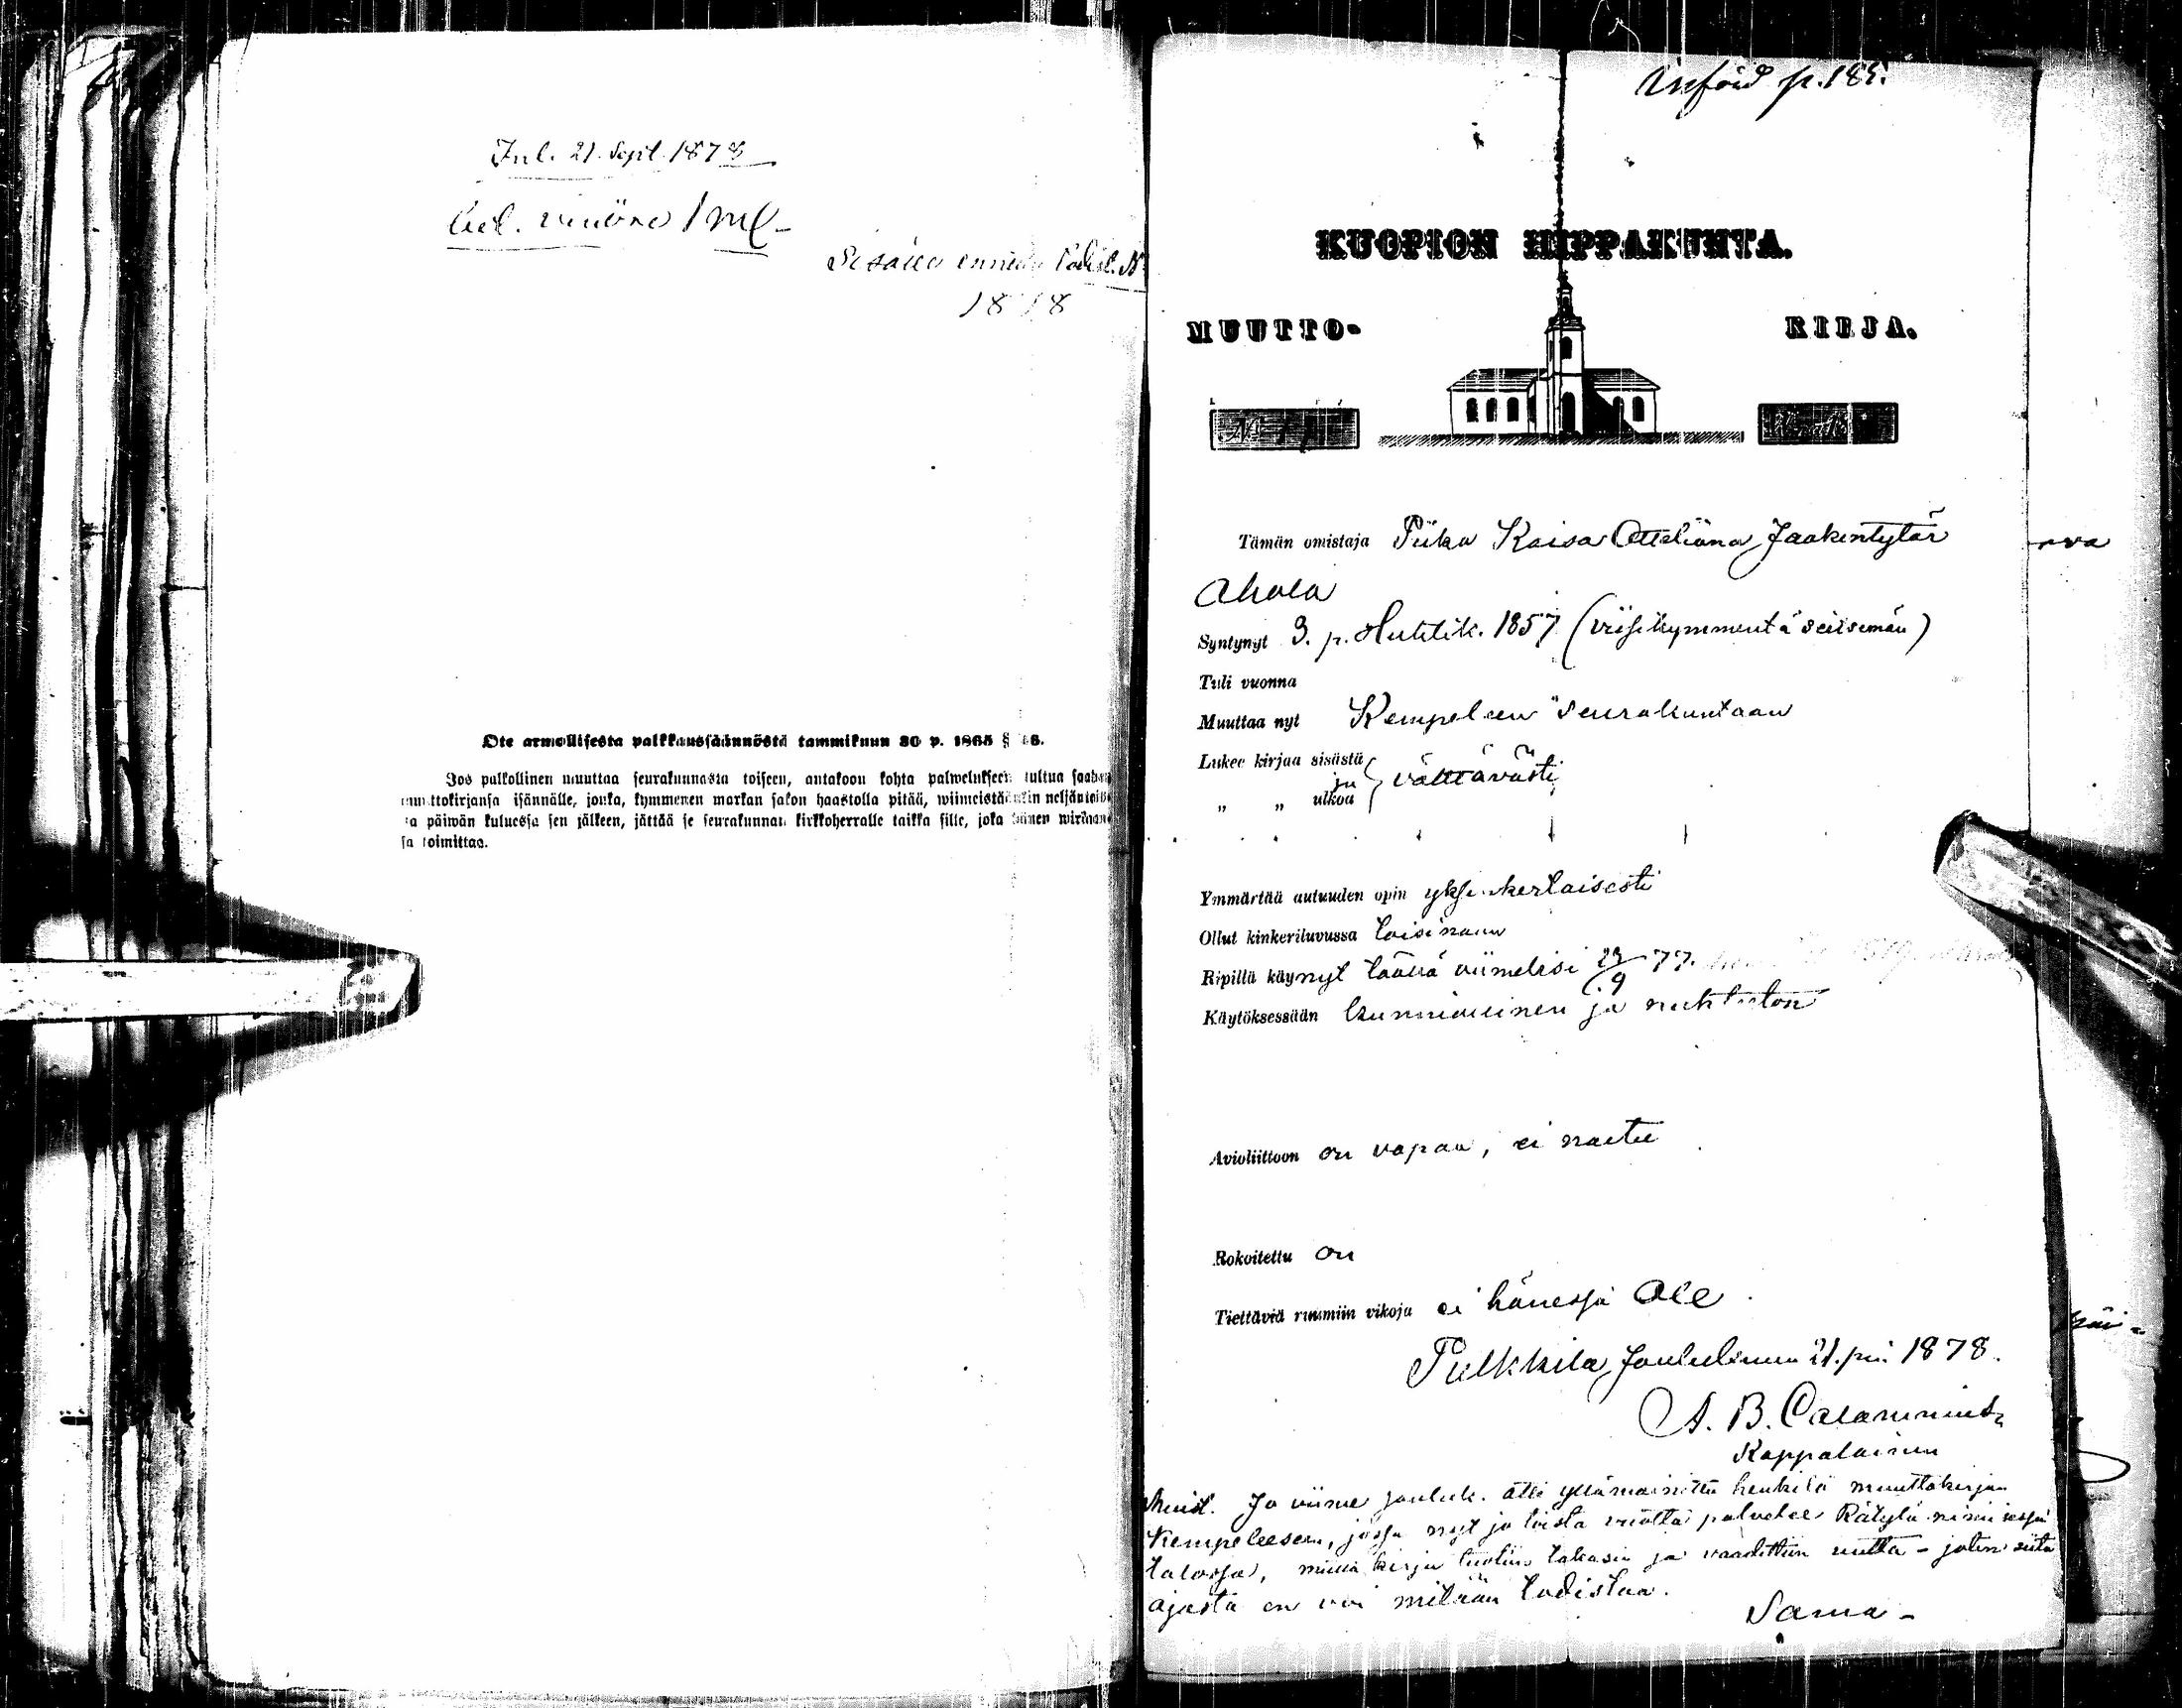 Inl. 21. Sept. 1878
bet. 1 mk
1878
Ote armollisesta palkkaussäännöstä tammikuun 30 p. 1865 §
Jos palkollinen muuttaa seurakunnasta toiseen, antakoon kohta palwelukseen tultua
muuttokirjansa isännälle, jonka, kymmenen markan sakon haastolla pitää, wiimeistäänkin
päiwän kuluessa sen jälkeen, jättää se seurakunnan kirkkoherralle taikka sille, joka hänen
sa toimittaa.
Införd p. 185.
KUOPION HIPPAKUNTA.
MUUTTO- KIRJA.
Tämän omistaja Piika Kaisa Ottiliana Jaakintytär
Ahola
Syntynyt 3. p. Huhtik. 1857 (viisikymmentä seitsemän)
Tuli vuonna
Muuttaa nyt Kempeleen seurakuntaan
Lukee kirjaa sisästä
ja välttävästi
„ „ ulkoa
Ymmärtää autuuden opin yksinkertaisesti
Ollut kinkeriluvussa toisinaan
Ripillä käynyt täällä viimeksi 23/9 77.
Käytöksessään kunniallinen ja nuhteeton
Avioliittoon on vapaa, ei naitu
Rokoitettu on
Tiettäviä ruumiin vikoja ei hänessä ole.
Pulkkila, Joulukuun 21. p:nä 1878.
A. B. Calamnius
Kappalainen
Muist. Jo viime jouluk. otti yllämainittu henkilö muuttokirjan
Kempeleeseen, jossa nyt jo toista vuotta palvelee Rätylä nimisessä
talossa, mikä kirja tuotiin takasin ja vaadittiin uutta - joten siitä
ajasta en voi mitään todistaa.
Sama -